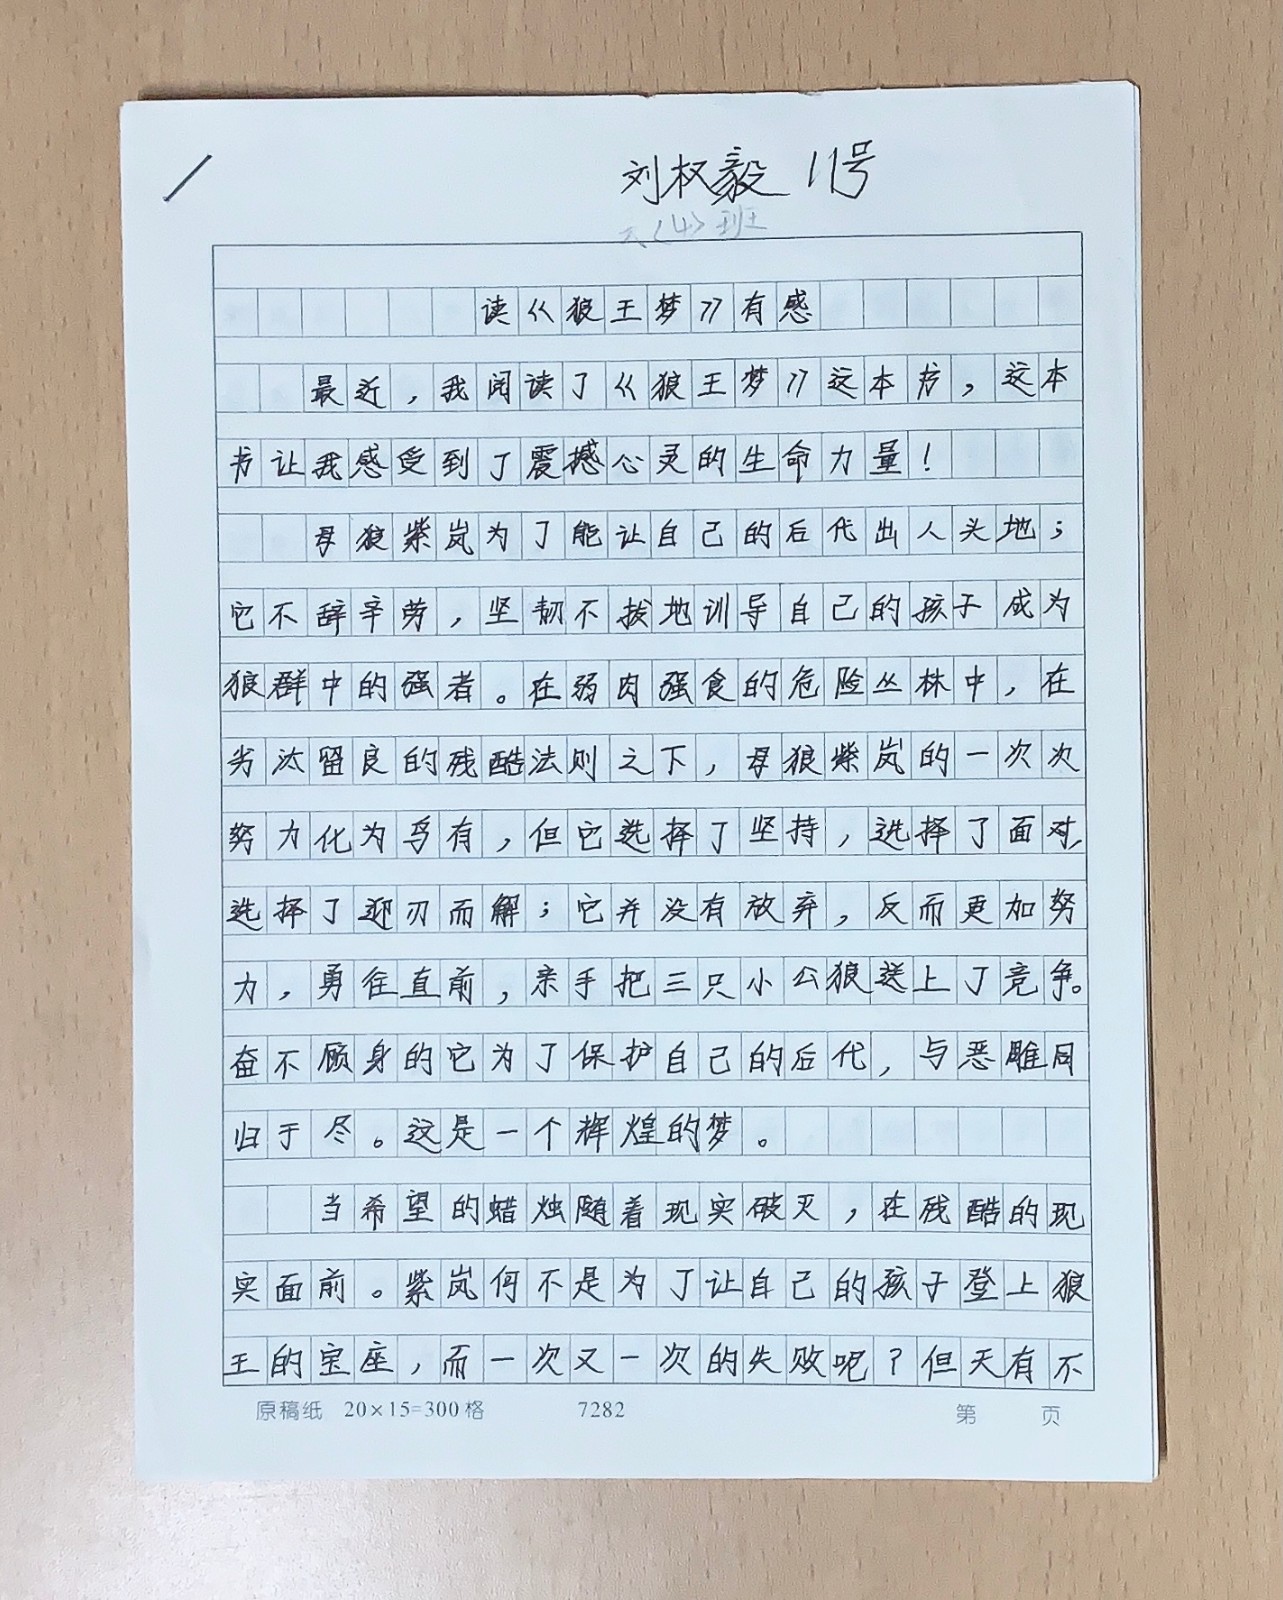 刘权毅 11号
六(4)班
读《狼王梦》有感
最近，我阅读了《狼王梦》这本书，这本
书让我感受到了震撼心灵的生命力量！
母狼紫岚为了能让自己的后代出人头地；
它不辞辛劳，坚韧不拔地训导自己的孩子成为
狼群中的强者。在弱肉强食的危险丛林中，在
劣汰留良的残酷法则之下，母狼紫岚的一次次
努力化为乌有，但它选择了坚持，选择了面对，
选择了迎刃而解；它并没有放弃，反而更加努
力，勇往直前，亲手把三只小公狼送上了竞争。
奋不顾身的它为了保护自己的后代，与恶雕同
归于尽。这是一个辉煌的梦。
当希望的蜡烛随着现实破灭，在残酷的现
实面前。紫岚何不是为了让自己的孩子登上狼
王的宝座，而一次又一次的失败呢？但天有不
原稿纸 20×15=300格 7282 第 页